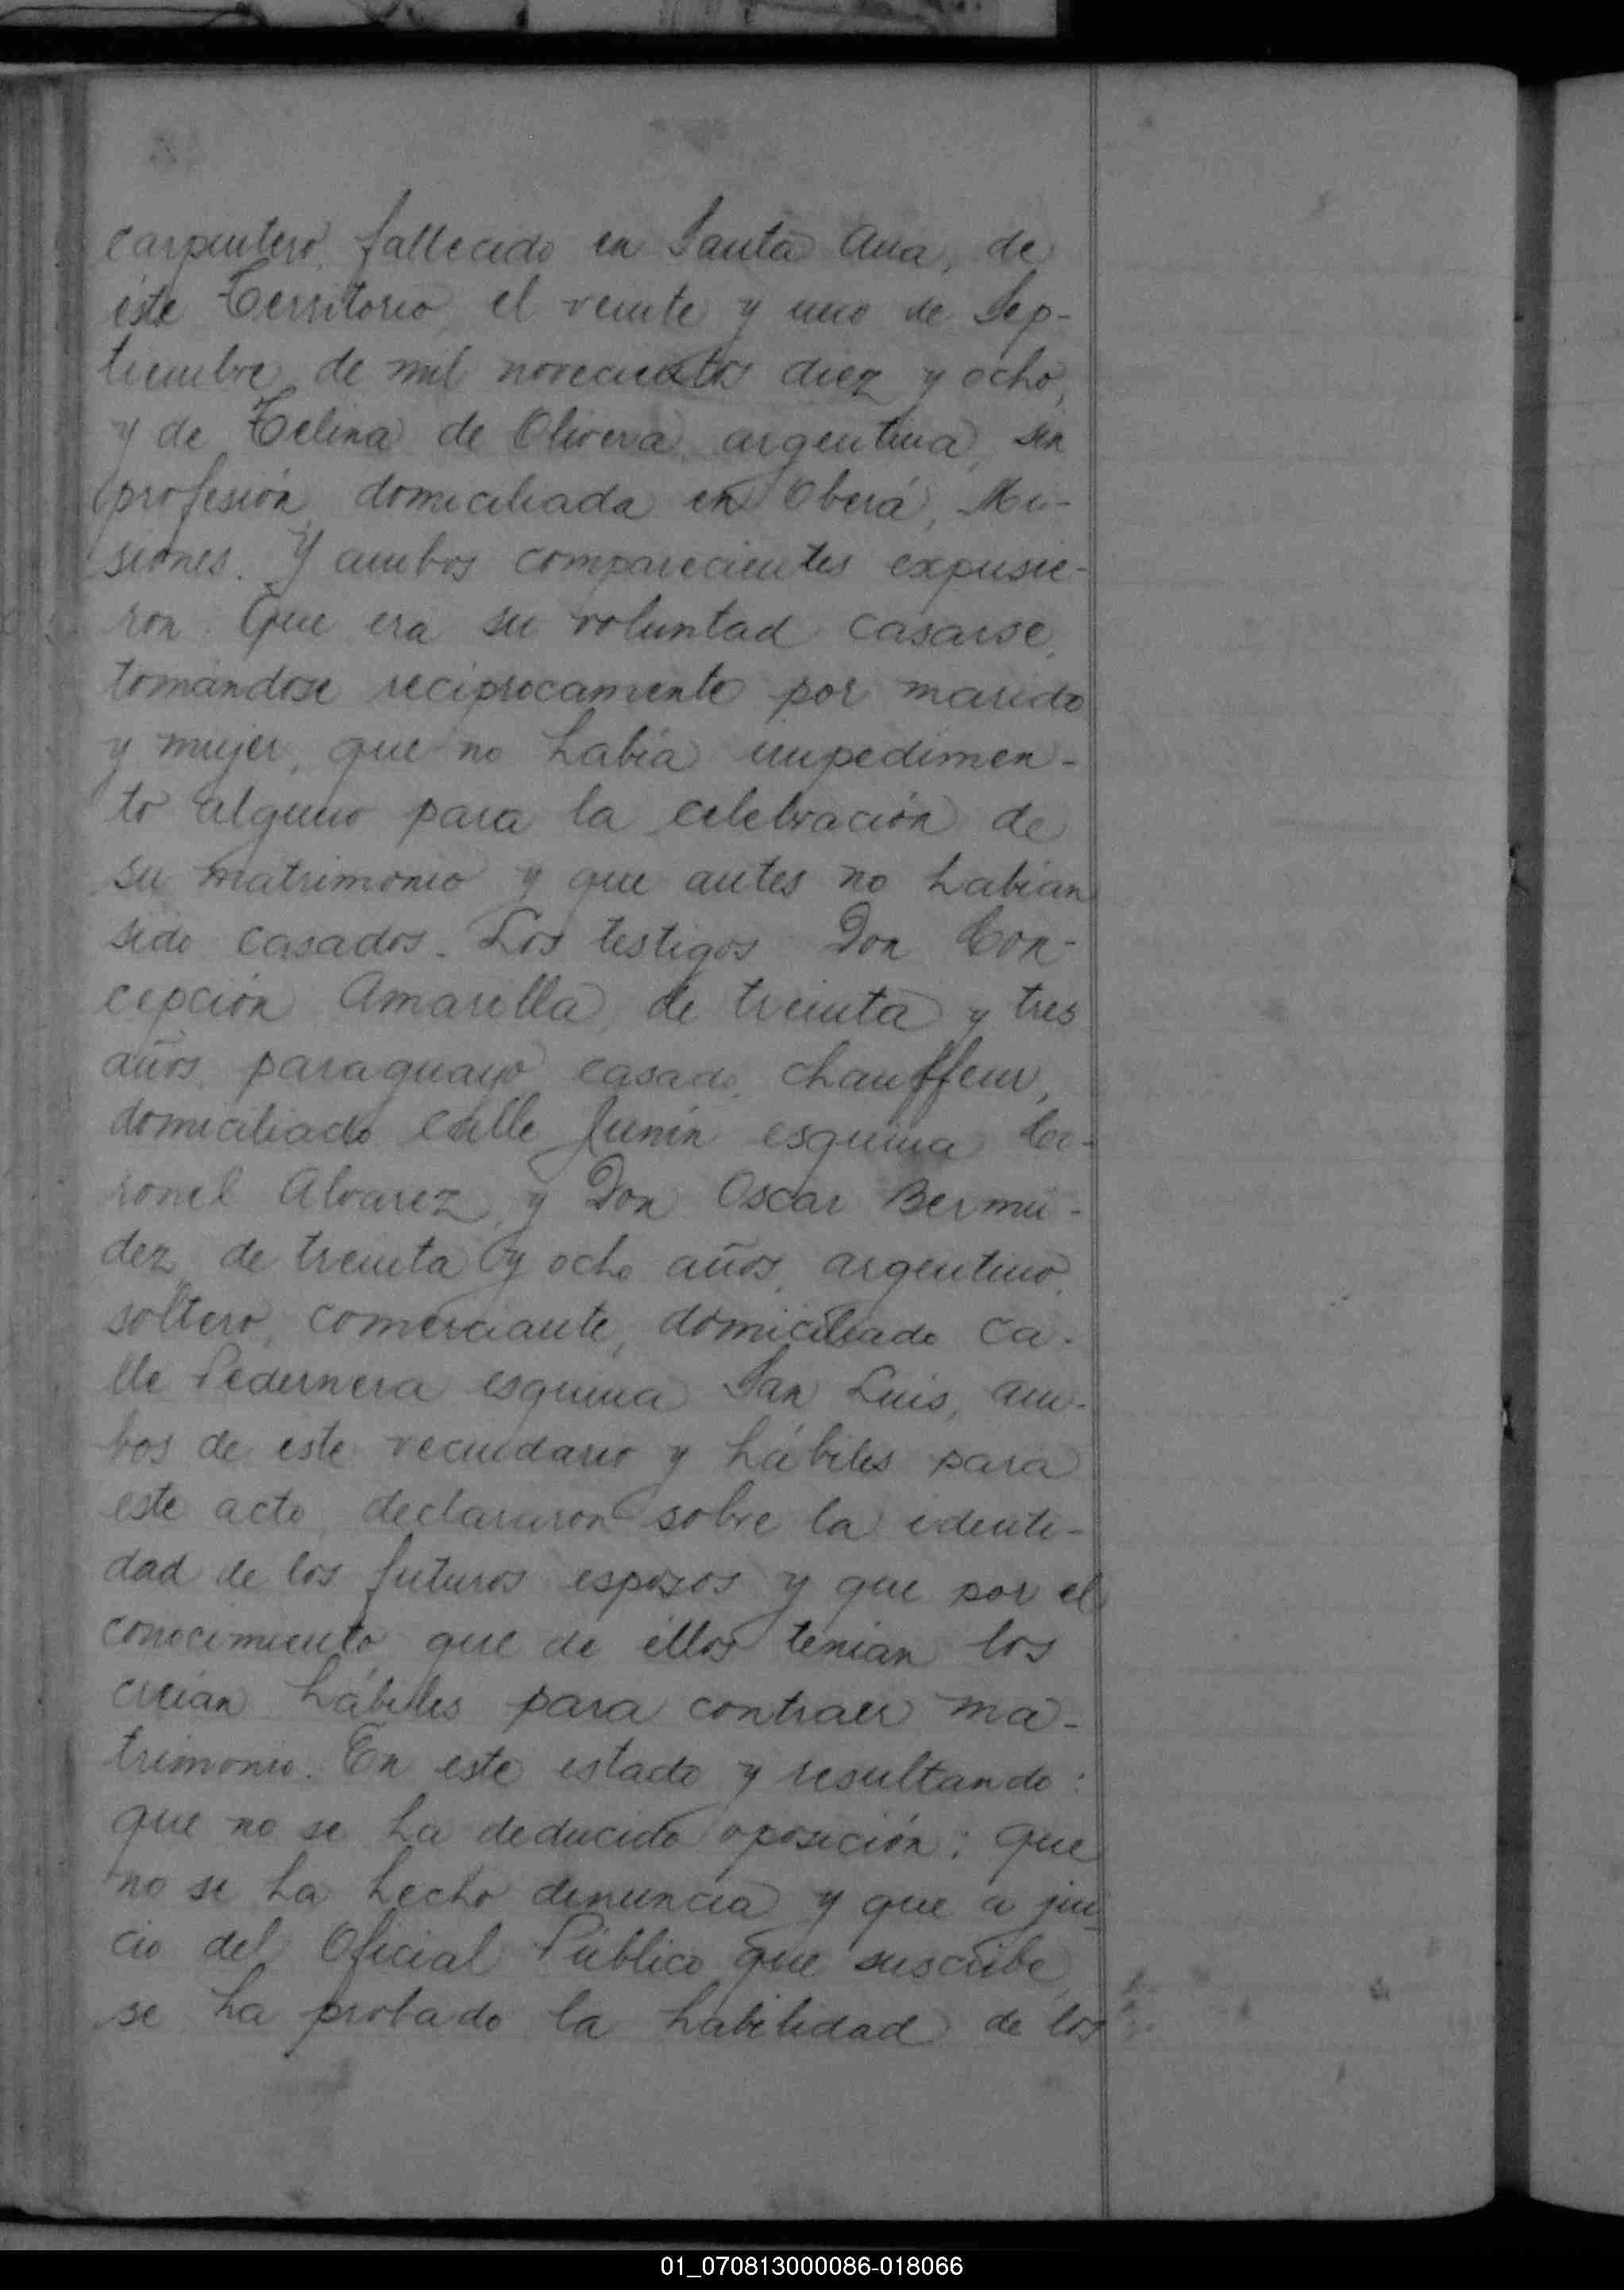 carpintero, fallecido en Santa Ana, de
éste Territorio, el veinte y uno de Sep-
tiembre de mil novecientos diez y ocho,
y de Telina de Olivera, argentina, sin
profesión, domiciliada en Oberá, Mi-
siones. Y ambos comparecientes expusie-
ron: Que era su voluntad casarse,
tomándose recíprocamente por marido
y mujer, que no había impedimen-
to alguno para la celebración de
su matrimonio y que antes no habían
sido casados. Los testigos Don Con-
cepción Amarilla, de treinta y tres
años, paraguayo, casado, chauffeur,
domiciliado calle Junín esquina Co-
ronel Alvarez, y Don Oscar Bermú-
dez, de treinta y ocho años, argentino,
soltero, comerciante, domiciliado ca-
lle Pedernera esquina San Luis, am-
bos de este vecindario y hábiles para
este acto, declararon sobre la identi-
dad de los futuros esposos y que por el
conocimiento que de éllos tenían los
creían hábiles para contraer ma-
trimonio. En este estado y resultando:
que no se ha deducido oposición; que
no se ha hecho denuncia y que a jui-
cio del Oficial Público que suscribe,
se ha probado la habilidad de los
01_070813000086-018066